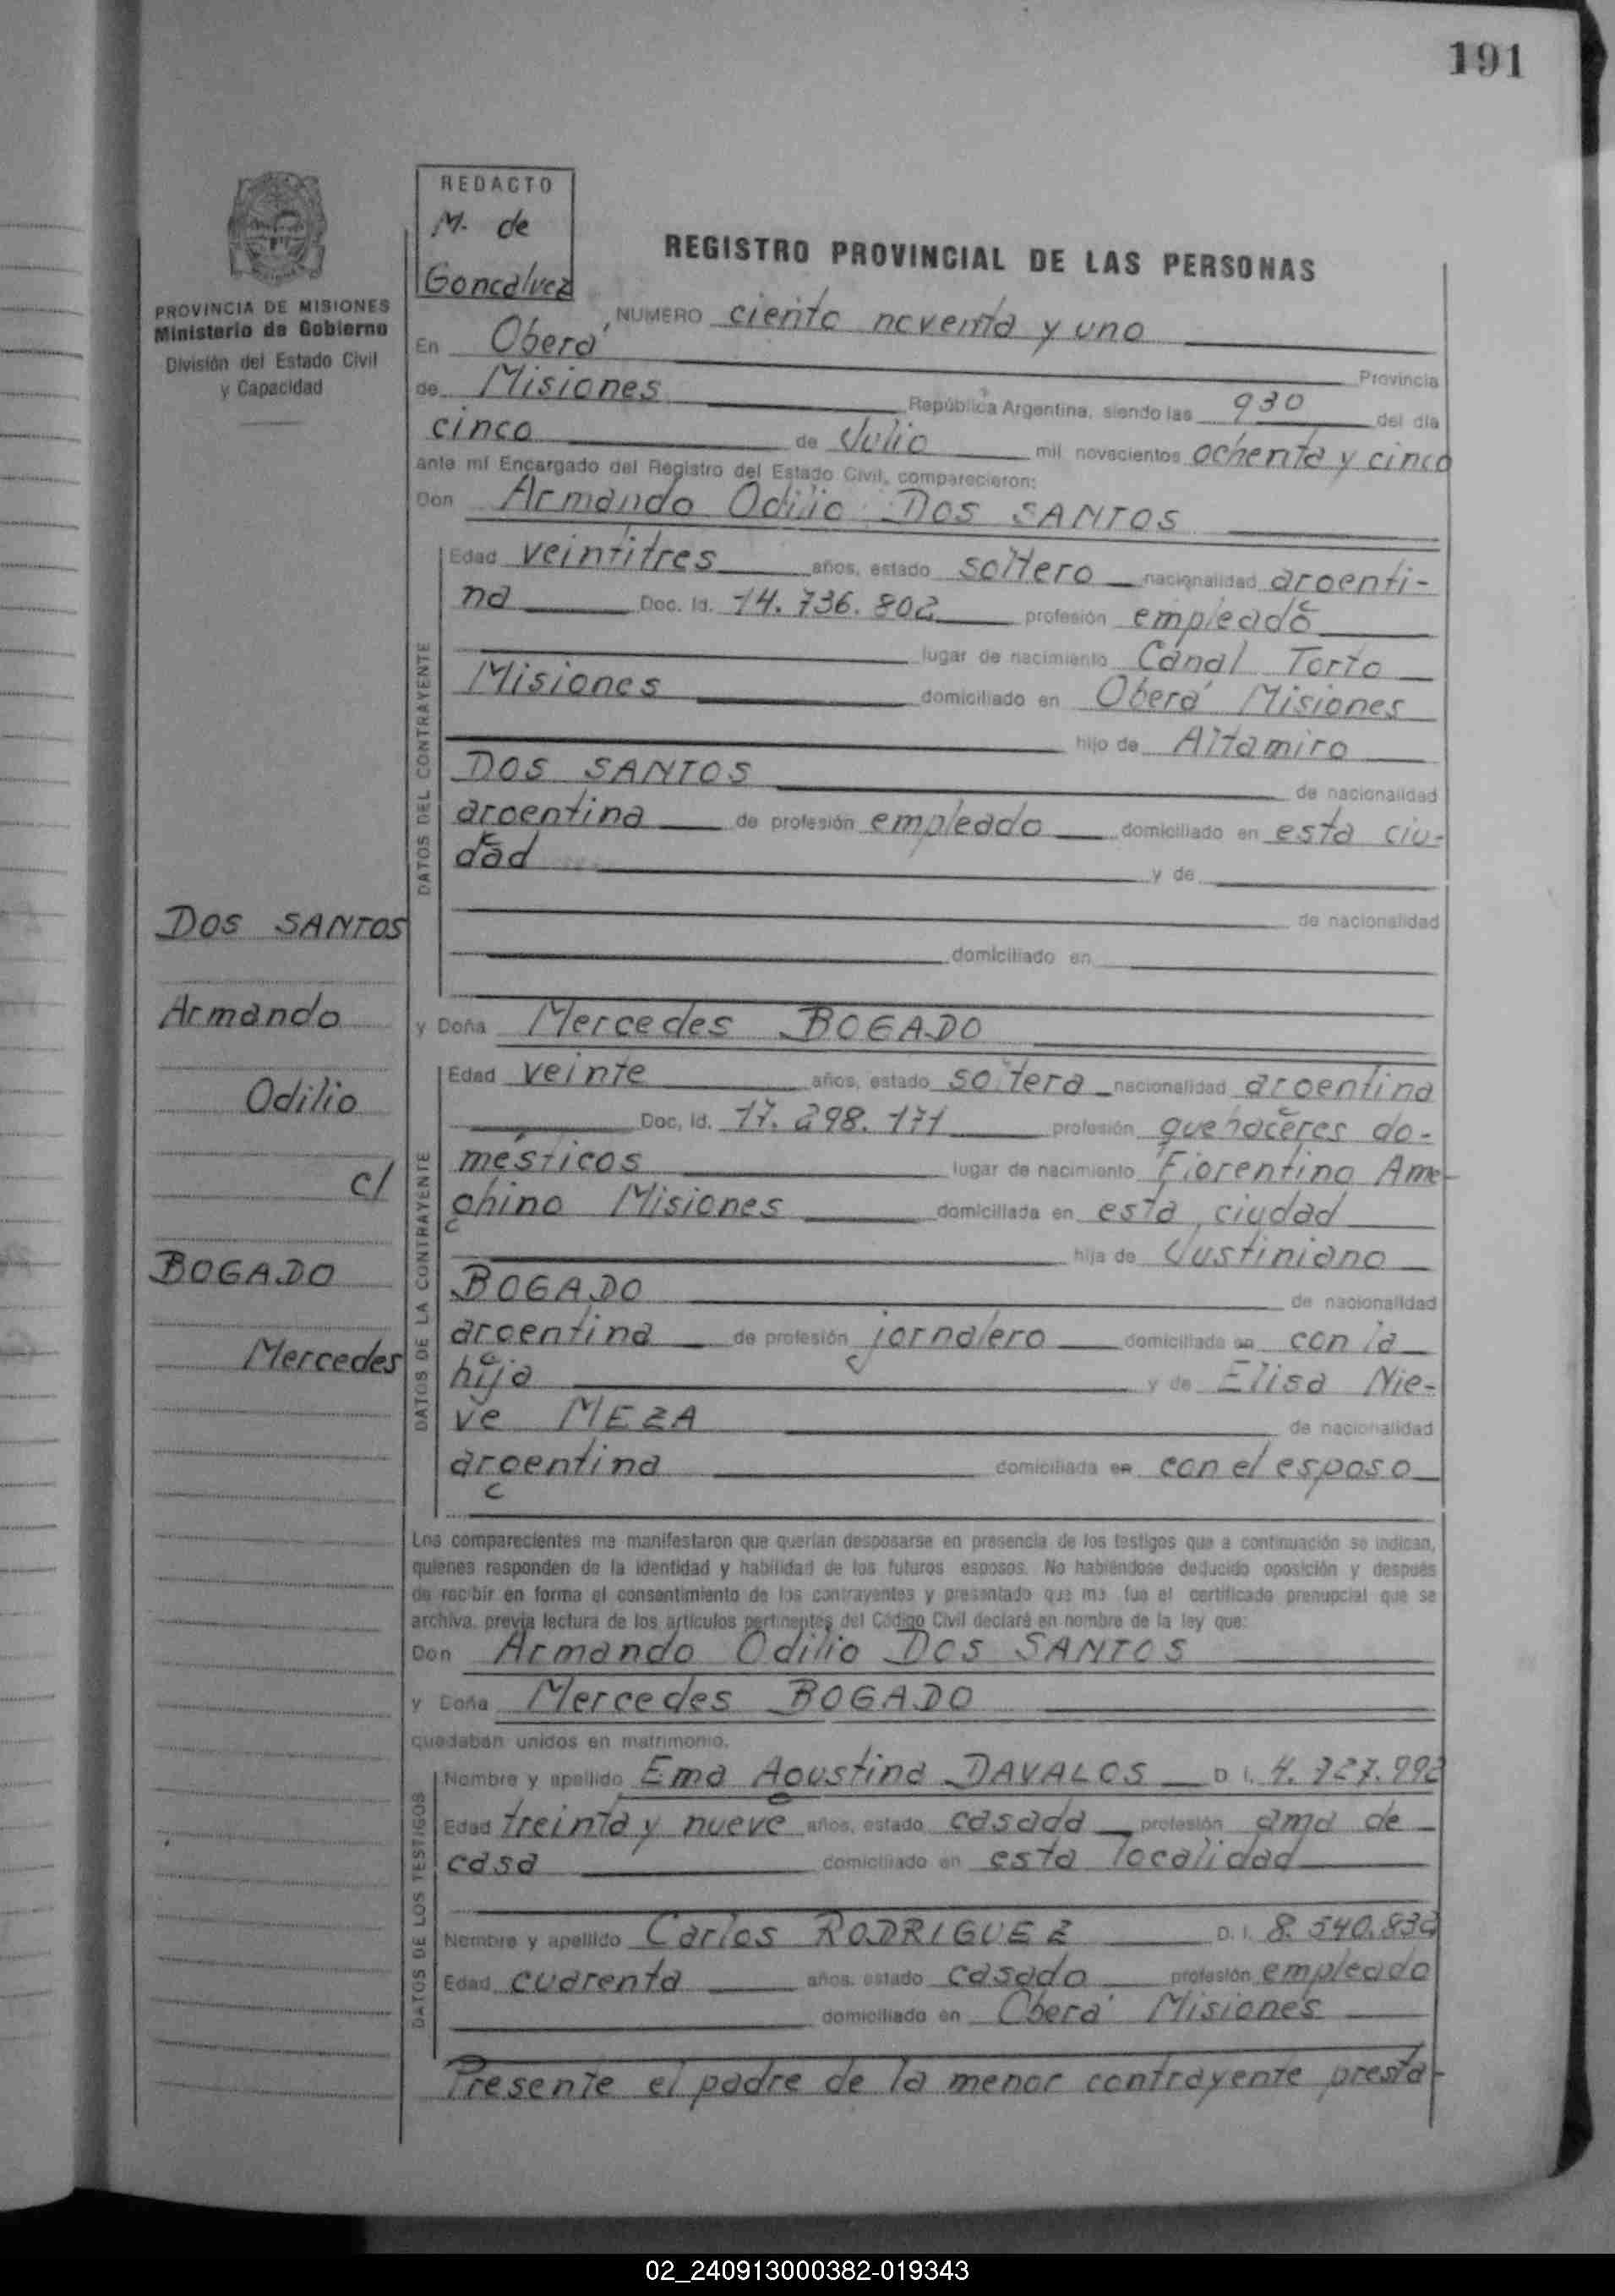 191
REDACTO
M. de
Goncalvez
REGISTRO PROVINCIAL DE LAS PERSONAS
PROVINCIA DE MISIONES
Ministerio de Gobierno
División del Estado Civil
y Capacidad
NUMERO ciento noventa y uno
En Oberá Provincia
de Misiones República Argentina, siendo las 930 del día
cinco de Julio mil novecientos ochenta y cinco
ante mí Encargado del Registro del Estado Civil, comparecieron:
Don Armando Odilio DOS SANTOS
DATOS DEL CONTRAYENTE
Edad veintitres años, estado soltero nacionalidad argenti-
na Doc. Id. 14.736.802 profesión empleado
lugar de nacimiento Canal Torto
Misiones domiciliado en Oberá Misiones
hijo de Altamiro
DOS SANTOS de nacionalidad
argentina de profesión empleado domiciliado en esta ciu-
dad y de
de nacionalidad
domiciliado en
DOS SANTOS
Armando
Odilio
c/
BOGADO
Mercedes
y Doña Mercedes BOGADO
DATOS DE LA CONTRAYENTE
Edad veinte años, estado soltera nacionalidad argentina
Doc. Id. 17.298.171 profesión quehaceres do-
mésticos lugar de nacimiento Fiorentino Ame-
ghino Misiones domiciliada en esta ciudad
hija de Justiniano
BOGADO de nacionalidad
argentina de profesión jornalero domiciliada en con la
hija y de Elisa Nie-
ve MEZA de nacionalidad
argentina domiciliada en con el esposo
Los comparecientes me manifestaron que querían desposarse en presencia de los testigos que a continuación se indican,
quienes responden de la identidad y habilidad de los futuros esposos. No habiéndose deducido oposición y después
de recibir en forma el consentimiento de los contrayentes y presentado que me fue el certificado prenupcial que se
archiva, previa lectura de los artículos pertinentes del Código Civil declaré en nombre de la ley que:
Don Armando Odilio DOS SANTOS
y Doña Mercedes BOGADO
quedaban unidos en matrimonio.
DATOS DE LOS TESTIGOS
Nombre y apellido Ema Agustina DAVALOS D. I. 4.727.992
Edad treinta y nueve años, estado casada profesión ama de
casa domiciliado en esta localidad
Nombre y apellido Carlos RODRIGUEZ D. I.
Edad cuarenta años, estado casado profesión empleado
domiciliado en Oberá Misiones
Presente el padre de la menor contrayente presta-
02_240913000382-019343